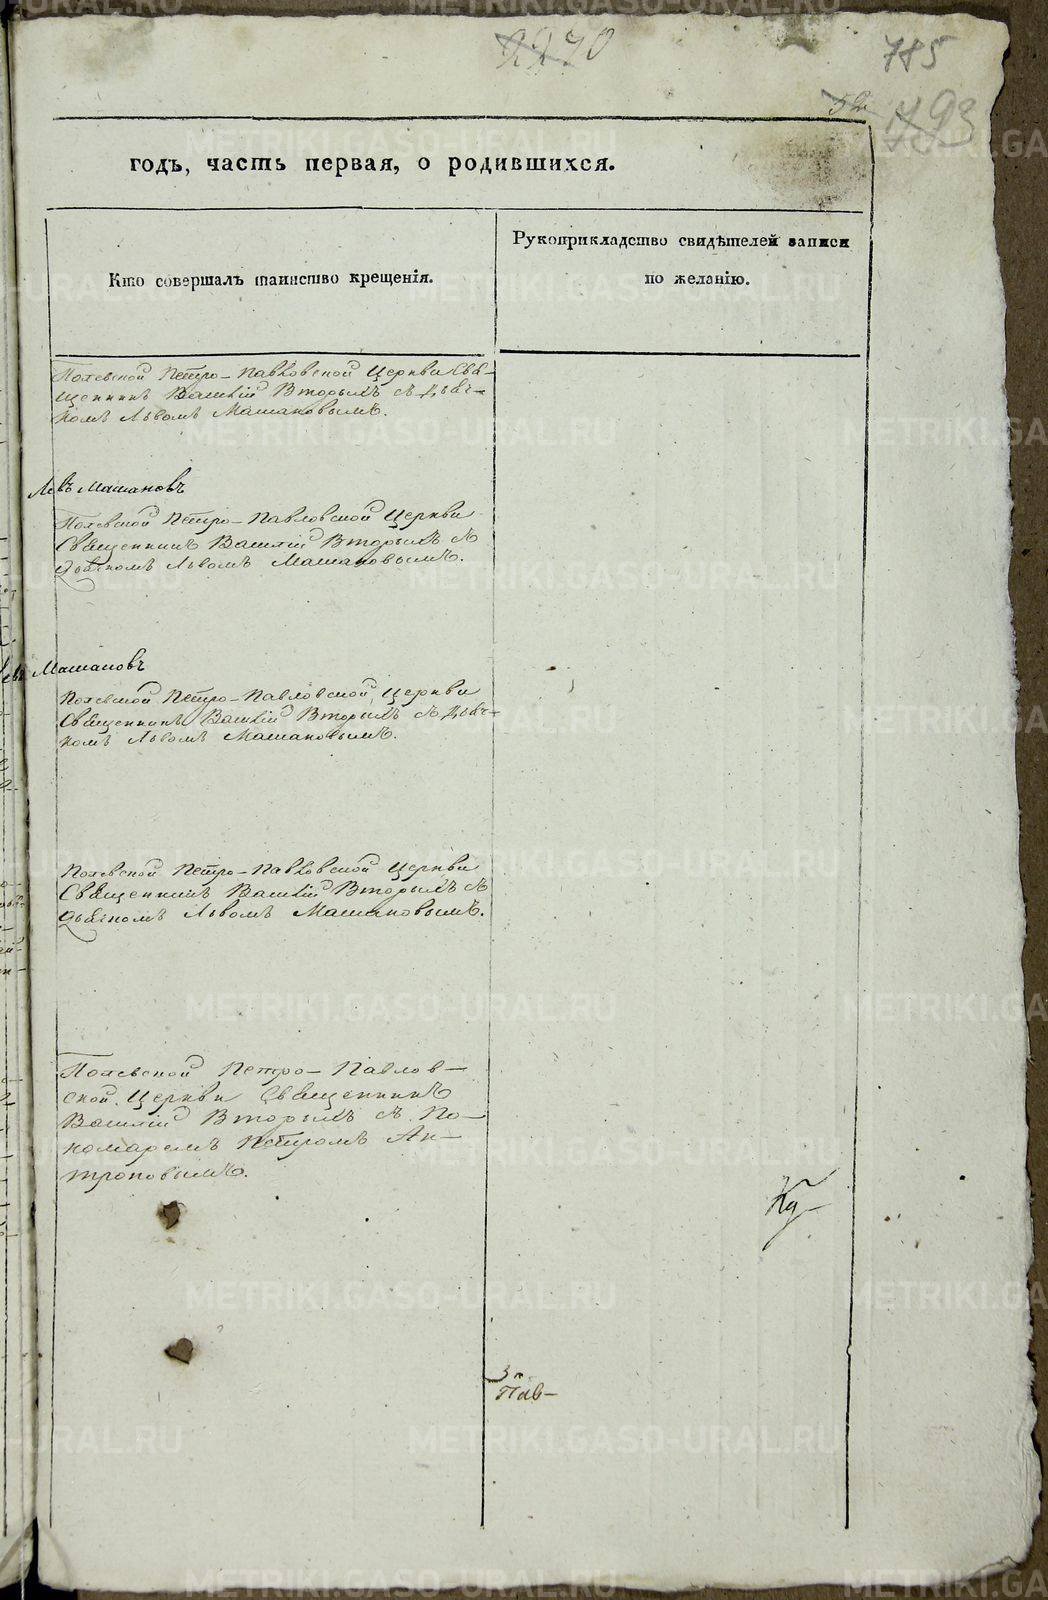 785
52
годъ, часть первая, о родившихся.
Кто совершалъ таинство крещенія.
Рукоприкладство свидѣтелей записи
по желанію.
Полевской Петро-Павловской Церкви Свя-
щенникъ Василій Вторыхъ съ Дьяч-
комъ Львомъ Машановымъ.
Левъ Машановъ
Полевской Петро-Павловской Церкви
Священникъ Василій Вторыхъ съ
Дьячкомъ Львомъ Машановымъ.
Машановъ
Полевской Петро-Павловской Церкви
Священникъ Василій Вторыхъ съ Дьяч-
комъ Львомъ Машановымъ.
Полевской Петро-Павловской Церкви
Священникъ Василій Вторыхъ съ
Дьячкомъ Львомъ Машановымъ.
Полевской Петро-Павлов-
ской Церкви Священникъ
Василій Вторыхъ съ По-
номаремъ Петромъ Ан-
троповымъ.
METRIKI.GASO-URAL.RU